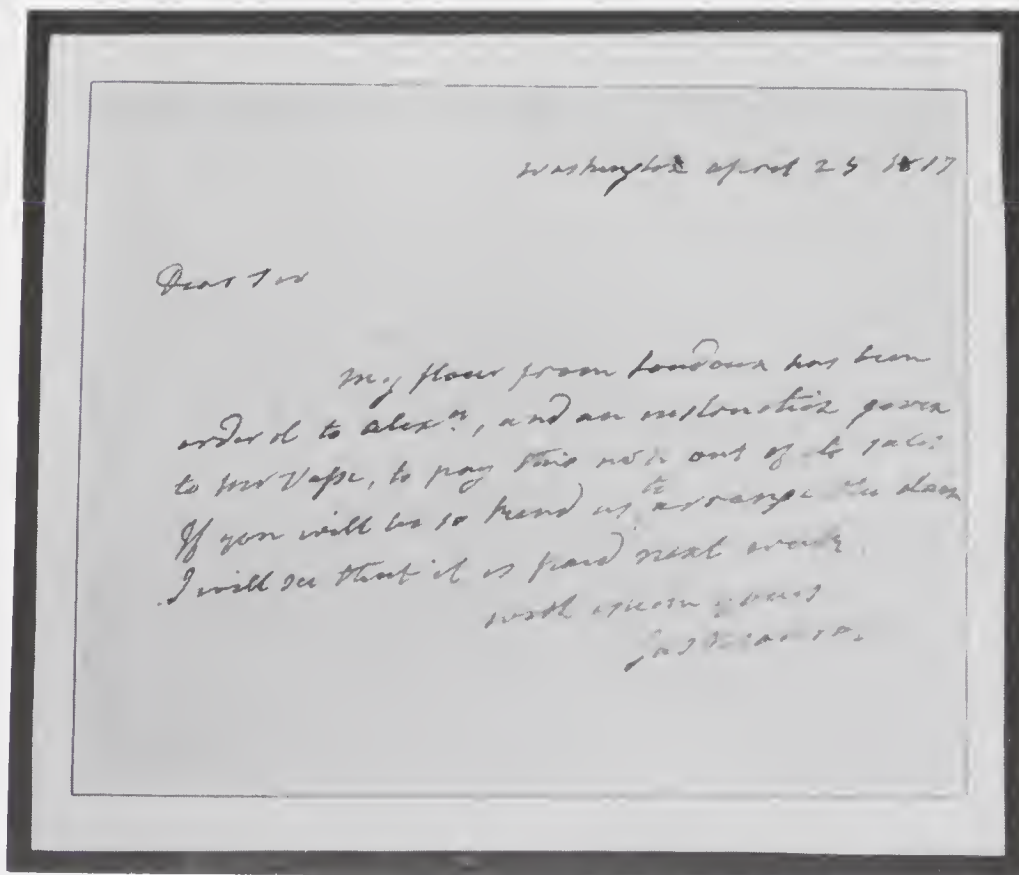 Washington april 25 1817
Dear Sir
My flour from Loudoun has been
orderd to alex.n, and an instruction given
to Mr Vasse, to pay this note out of its sales.
If you will be so kind as to arrange the
I will see that it is paid next week.
with esteem yours
Jas Monroe